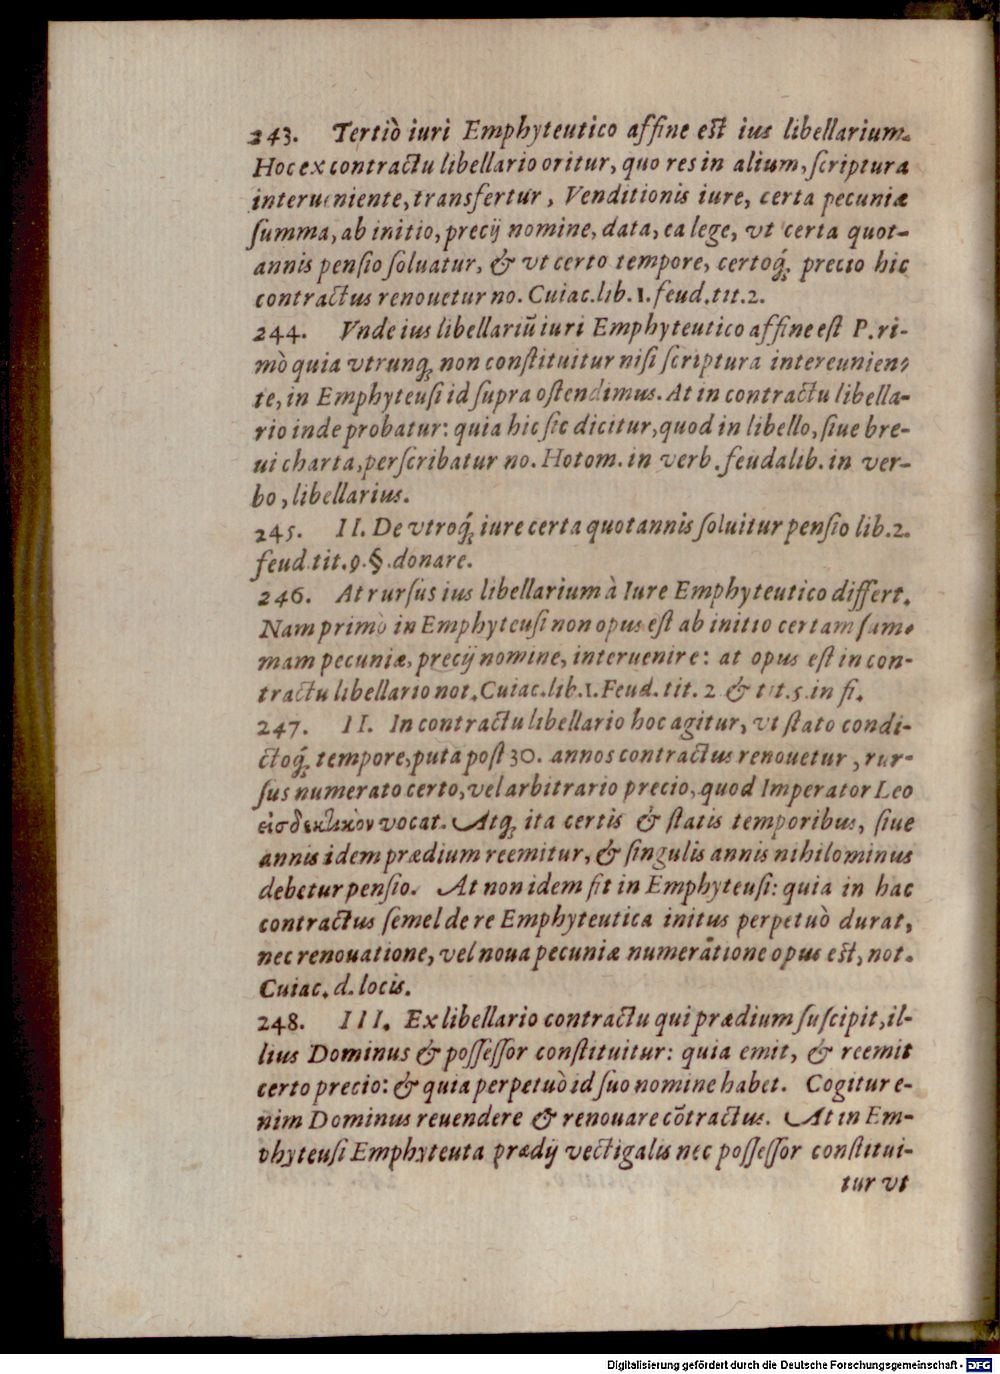 243. Tertiò iuri Emphyteutico affine est ius libellarium.
Hoc ex contractu libellario oritur, quo res in alium, ſcriptura
interueniente, transfertur, Venditionis iure, certa pecuniæ
ſumma, ab initio, precij nomine, data, ea lege, vt certa quot-
annis penſio ſoluatur, & vt certo tempore, certoq́; precio hic
contractus renouetur no. Cuiac. lib. 1. feud. tit. 2.
244. Vnde ius libellariũ iuri Emphyteutico affine eſt P. ri-
mò quia vtrunq; non conſtituitur niſi ſcriptura intereunien-
te, in Emphyteuſi id ſupra oſtendimus. At in contractu libella-
rio inde probatur: quia hic ſic dicitur, quod in libello, ſiue bre-
ui charta, perſcribatur no. Hotom. in verb. feudalib. in ver-
bo, libellarius.
245. II. De vtroq́; iure certa quotannis ſoluitur penſio lib. 2.
feud. tit. 9. §. donare.
246. At rurſus ius libellarium à Iure Emphyteutico differt.
Nam primò in Emphyteuſi non opus eſt ab initio certam ſum-
mam pecuniæ, precij nomine, interuenire: at opus eſt in con-
tractu libellario not. Cuiac. lib. 1. Feud. tit. 2 & tit. 5. in fi.
247. II. In contractu libellario hoc agitur, vt ſtato condi-
ctoq́; tempore, puta poſt 30. annos contractus renouetur, rur-
ſus numerato certo, vel arbitrario precio, quod Imperator Leo
εἰσδεκτικὸν vocat. Atq; ita certis & ſtatis temporibus, ſiue
annis idem prædium reemitur, & ſingulis annis nihilominus
debetur penſio. At non idem fit in Emphyteuſi: quia in hac
contractus ſemel de re Emphyteutica initus perpetuò durat,
nec renouatione, vel noua pecuniæ numeratione opus eſt, not.
Cuiac. d. locis.
248. III. Ex libellario contractu qui prædium ſuſcipit, il-
lius Dominus & poſſeſſor conſtituitur: quia emit, & reemit
certo precio: & quia perpetuò id ſuo nomine habet. Cogitur e-
nim Dominus reuendere & renouare cõtractus. At in Em-
phyteuſi Emphyteuta prædij vectigalis nec poſſeſſor conſtitui-
tur vt
Digitalisierung gefördert durch die Deutsche Forschungsgemeinschaft - DFG